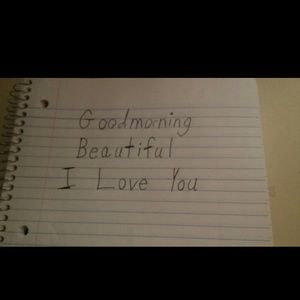 Goodmorning
Beautiful
I Love You